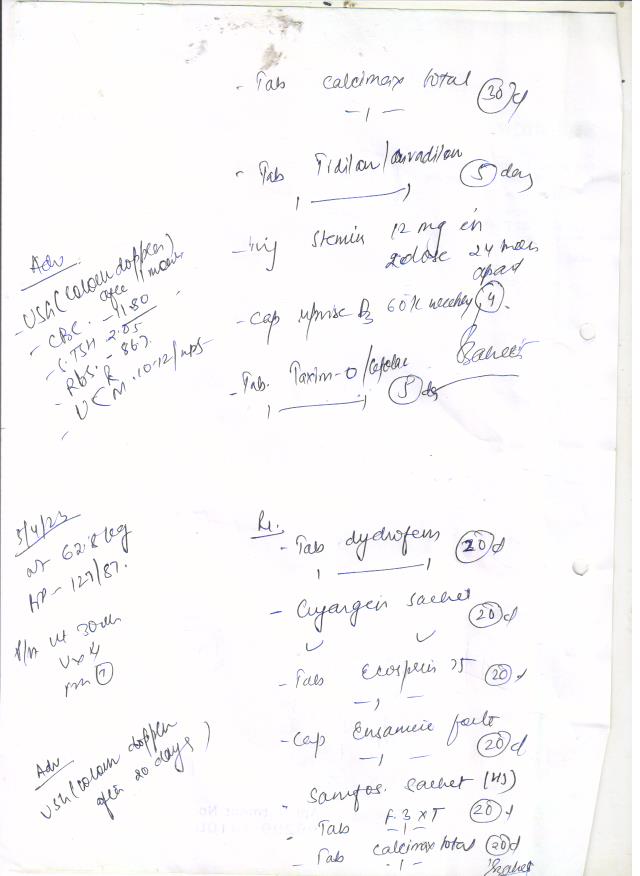 - Tab calcimax total 30 d
- Tab Tidilan/duvadilan 5 day
- Inj Stemin 12 mg in
2 dose 24 hours
apart
- Cap uprise D3 60K weekly 4
- Tab. Taxim-O/
5 day
Adv
- USG (colour doppler)
after 1 month
- CBC - 11.80
- S.TSH 2.85
- RBS - 86
- U R M - 10-12/
5/4/23
wt 62.8 kg
BP - 127/87.
P/A ut 30
Adv
USG (colour doppler
after 20 days)
Rx.
- Tab dydrofem 20 d
- Cyargin sachet 20 d
- Tab Ecosprin 75 20 d
- Cap forte 20 d
- sachet (HS)
- Tab F 3 XT 20 d
- Tab calcimax total 20 d